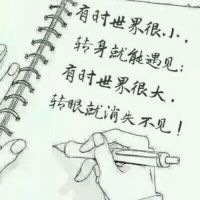 有时世界很小，
转身就能遇见；
有时世界很大，
转眼就消失不见！